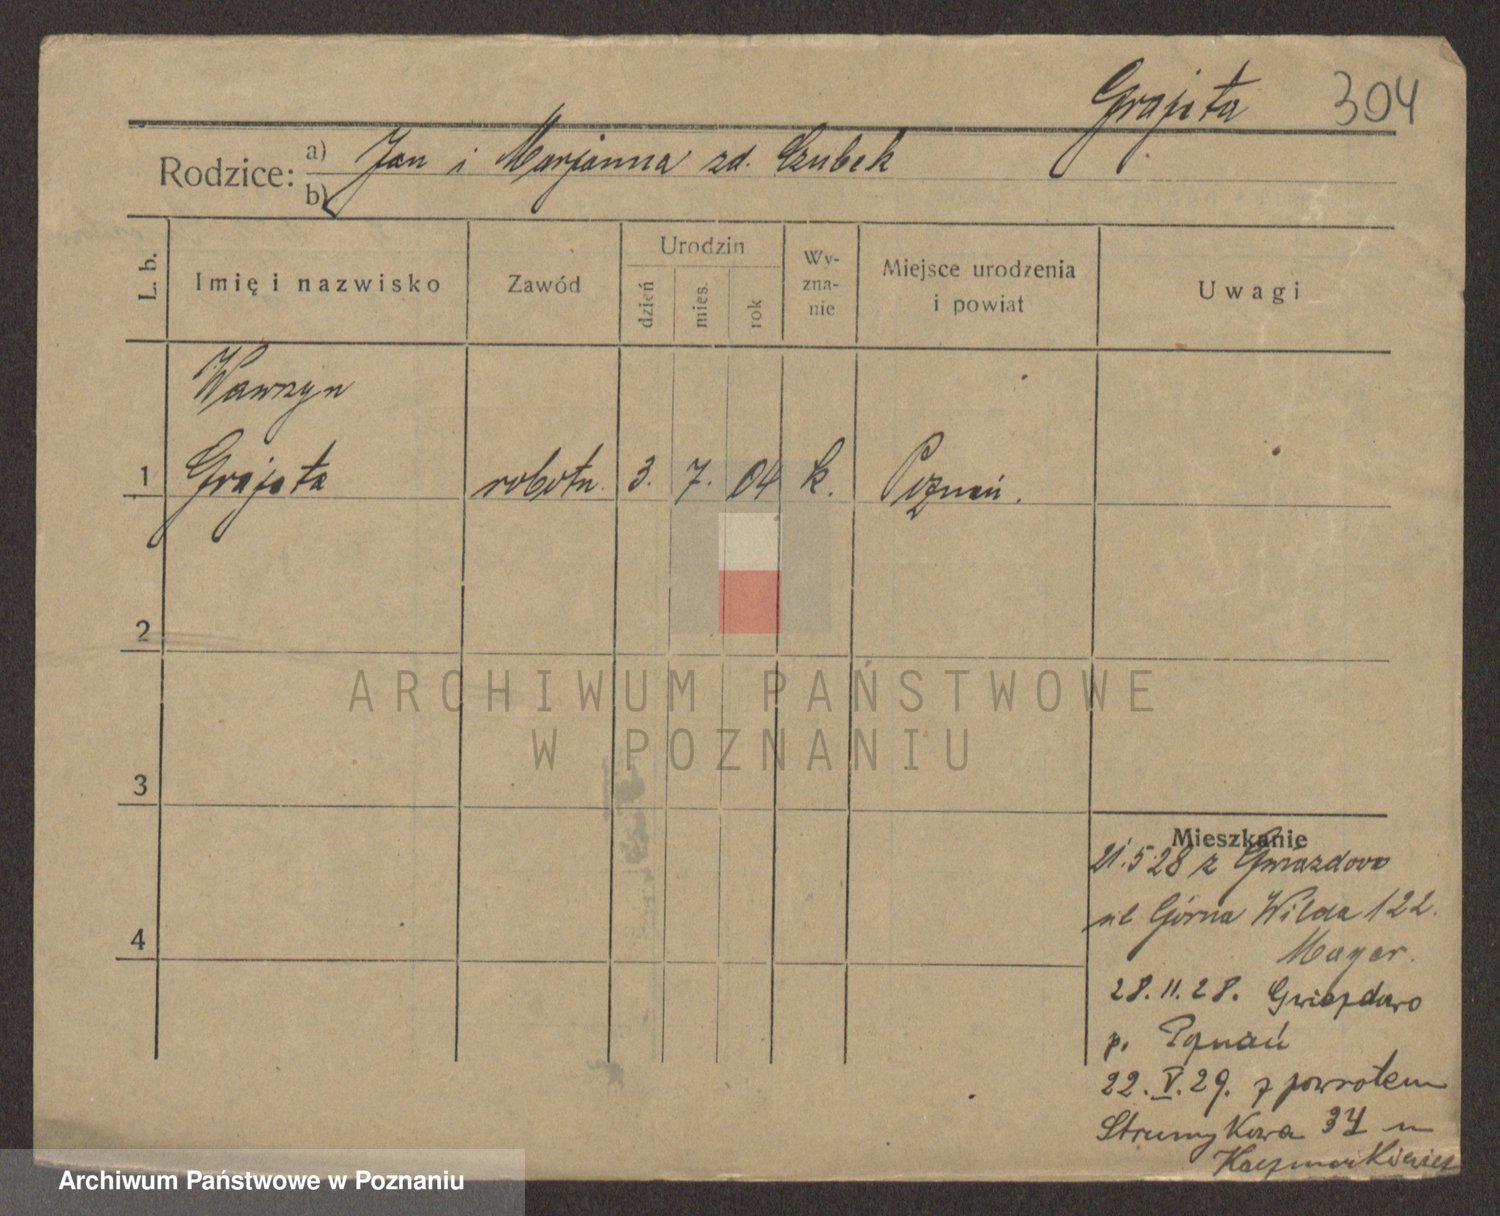 Grajeta 304
Rodzice:
a) Jan i Marjanna zd. Czubek
b)
L. b.
Imię i nazwisko
Zawód
Urodzin
dzień
mies.
rok
Wy-
zna-
nie
Miejsce urodzenia
i powiat
Uwagi
Wawrzyn
1 Grajeta robotn. 3. 7. 04 k. Poznań.
2
3
4
ARCHIWUM PAŃSTWOWE
W POZNANIU
Mieszkanie
21.5.28 z Gwiazdowo
ul Górna Wilda 122.
Mayer.
28.11.28. Gwiazdowo
p. Poznań
22.V.29. z powrotem
Strumykowa 34 u
Archiwum Państwowe w Poznaniu